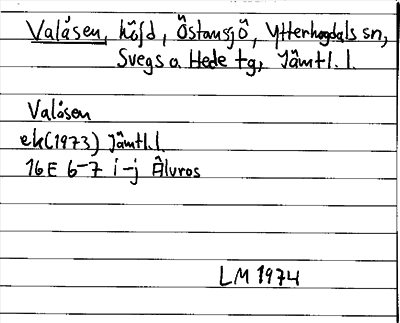 Valåsen, höjd, Östansjö, Ytterhogdals sn,
Svegs o. Hede tg, Jämtl. l.
Valåsen
ek(1973) Jämtl.l.
16E 6-7 i-j Älvros
LM 1974